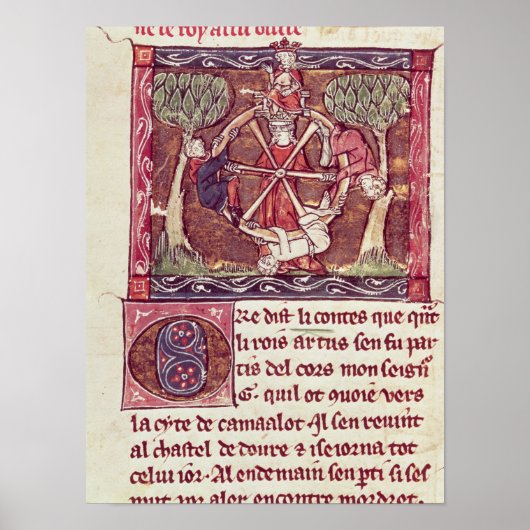 ne le roy artu oucie
Ore dist li contes que qñt
li rois artus sen fu par
tis del cors mon seignr̃
G. quil ot enuoie vers
la cyte de camaalot. Il sen reuint
al chastel de doure & i seiorna tot
celui ior. Al endemain sen pti si ses
mut pr aler encontre mordret.